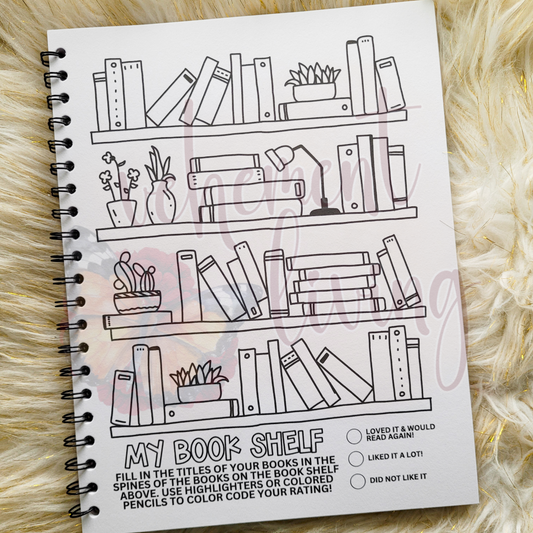 vehement
living
MY BOOK SHELF
FILL IN THE TITLES OF YOUR BOOKS IN THE
SPINES OF THE BOOKS ON THE BOOK SHELF
ABOVE. USE HIGHLIGHTERS OR COLORED
PENCILS TO COLOR CODE YOUR RATING!
LOVED IT & WOULD
READ AGAIN!
LIKED IT A LOT!
DID NOT LIKE IT